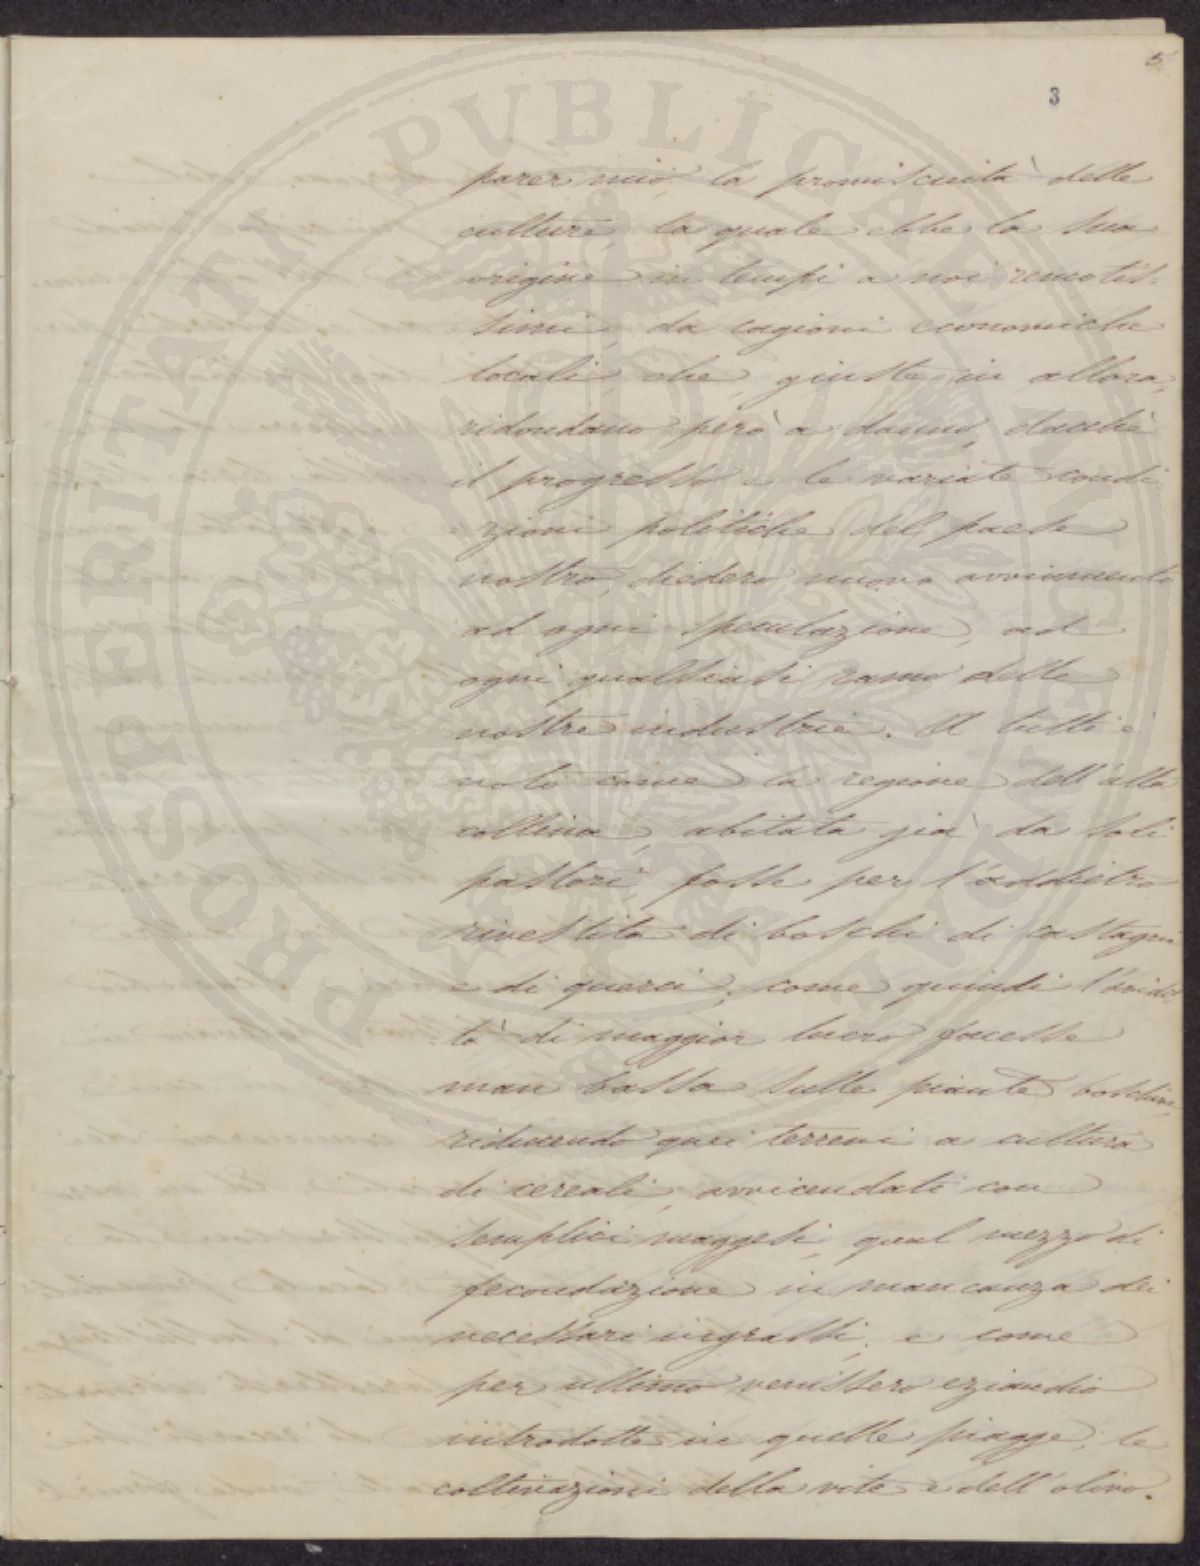 5
3
parer mio, la promiscuità delle
culture, la quale ebbe la sua
origine in tempi a noi remotis-
simi, da cagioni economiche
locali, che, giuste in allora,
ridondano però a danno, dacchè
il progresso e le variate condi
zioni politiche del paese
nostro, diedero nuovo avviamento
ad ogni speculazione, ad
ogni qualsiasi ramo delle
nostre industrie. A tutti è
noto come la regione dell'alta
collina, abitata già da soli
pastori, fosse per l'addietro
rivestita di boschi di castagni
e di querci; come quindi l'avidi
tà di maggior lucro facesse
man bassa sulle piante boschive,
riducendo quei terreni a cultura
di cereali, avvicendati con
semplici maggesi, qual mezzo di
fecondazione in mancanza dei
necessari ingrassi; e come
per ultimo venissero eziandio
introdotte in quelle piagge, le
coltivazioni della vite e dell'olivo.
PROSPERITATI PUBLICAE AUGENDAE